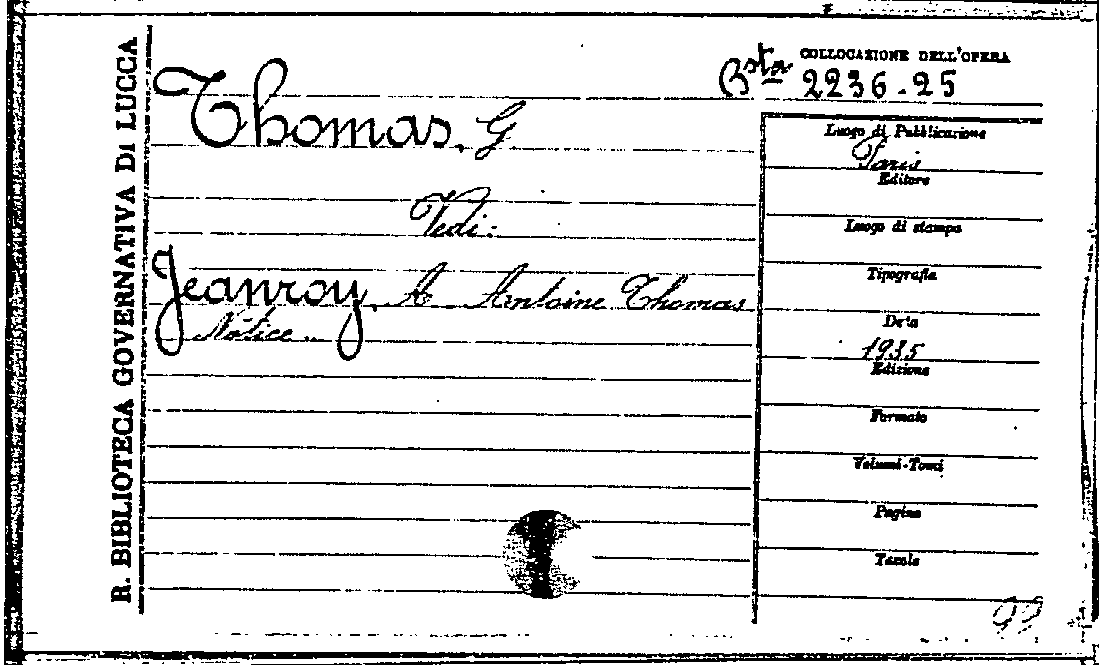 R. BIBLIOTECA GOVERNATIVA DI LUCCA
COLLOCAZIONE DELL'OPERA
Bsta 2236.25
Thomas, G
Vedi:
Jeanroy, A Antoine Thomas
Notice..
Luogo di Pubblicazione
Paris
Editore
Luogo di stampa
Tipografia
Data
1935
Edizione
Formato
Volumi-Tomi
Pagine
Tavole